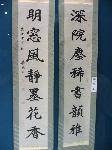 深院塵稀書韻雅
明窓風靜墨花香